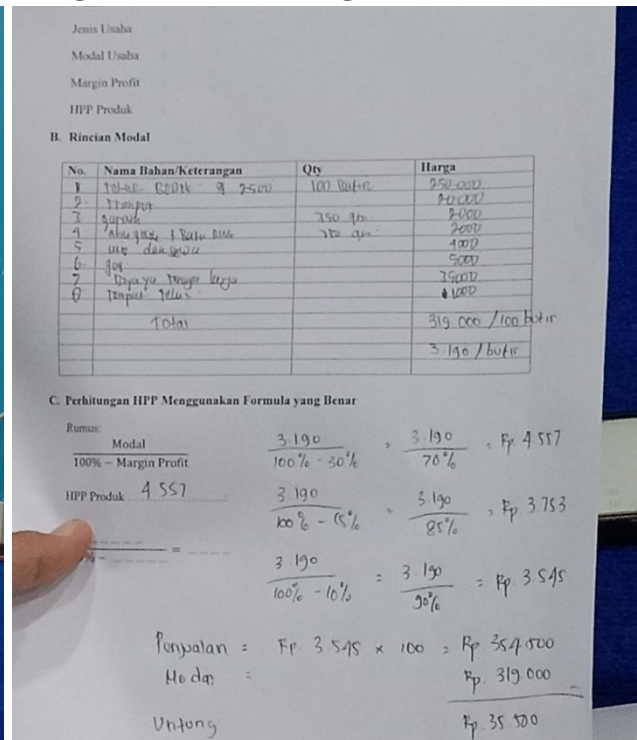 Jenis Usaha
Modal Usaha
Margin Profit
HPP Produk
B. Rincian Modal
No. Nama Bahan/Keterangan Qty Harga
1 Telur @ 2500 100 Butir 250.000
2 20.000
3 garam 250 gr 2000
4 abu gosok 2000
5 air 4000
6 gas 5000
7 Biaya tenaga kerja 35000
8 Tempat Telur 1000
Total 319.000 / 100 butir
3.190 / butir
C. Perhitungan HPP Menggunakan Formula yang Benar
Rumus:
Modal
100% – Margin Profit
3.190 / 100% - 30% = 3.190 / 70% = Rp. 4.557
HPP Produk 4.557
3.190 / 100% - 15% = 3.190 / 85% = Rp 3.753
3.190 / 100% - 10% = 3.190 / 90% = Rp. 3.545
Penjualan = Rp 3.545 x 100 = Rp 354.500
Modal = Rp. 319.000
Untung Rp. 35.500